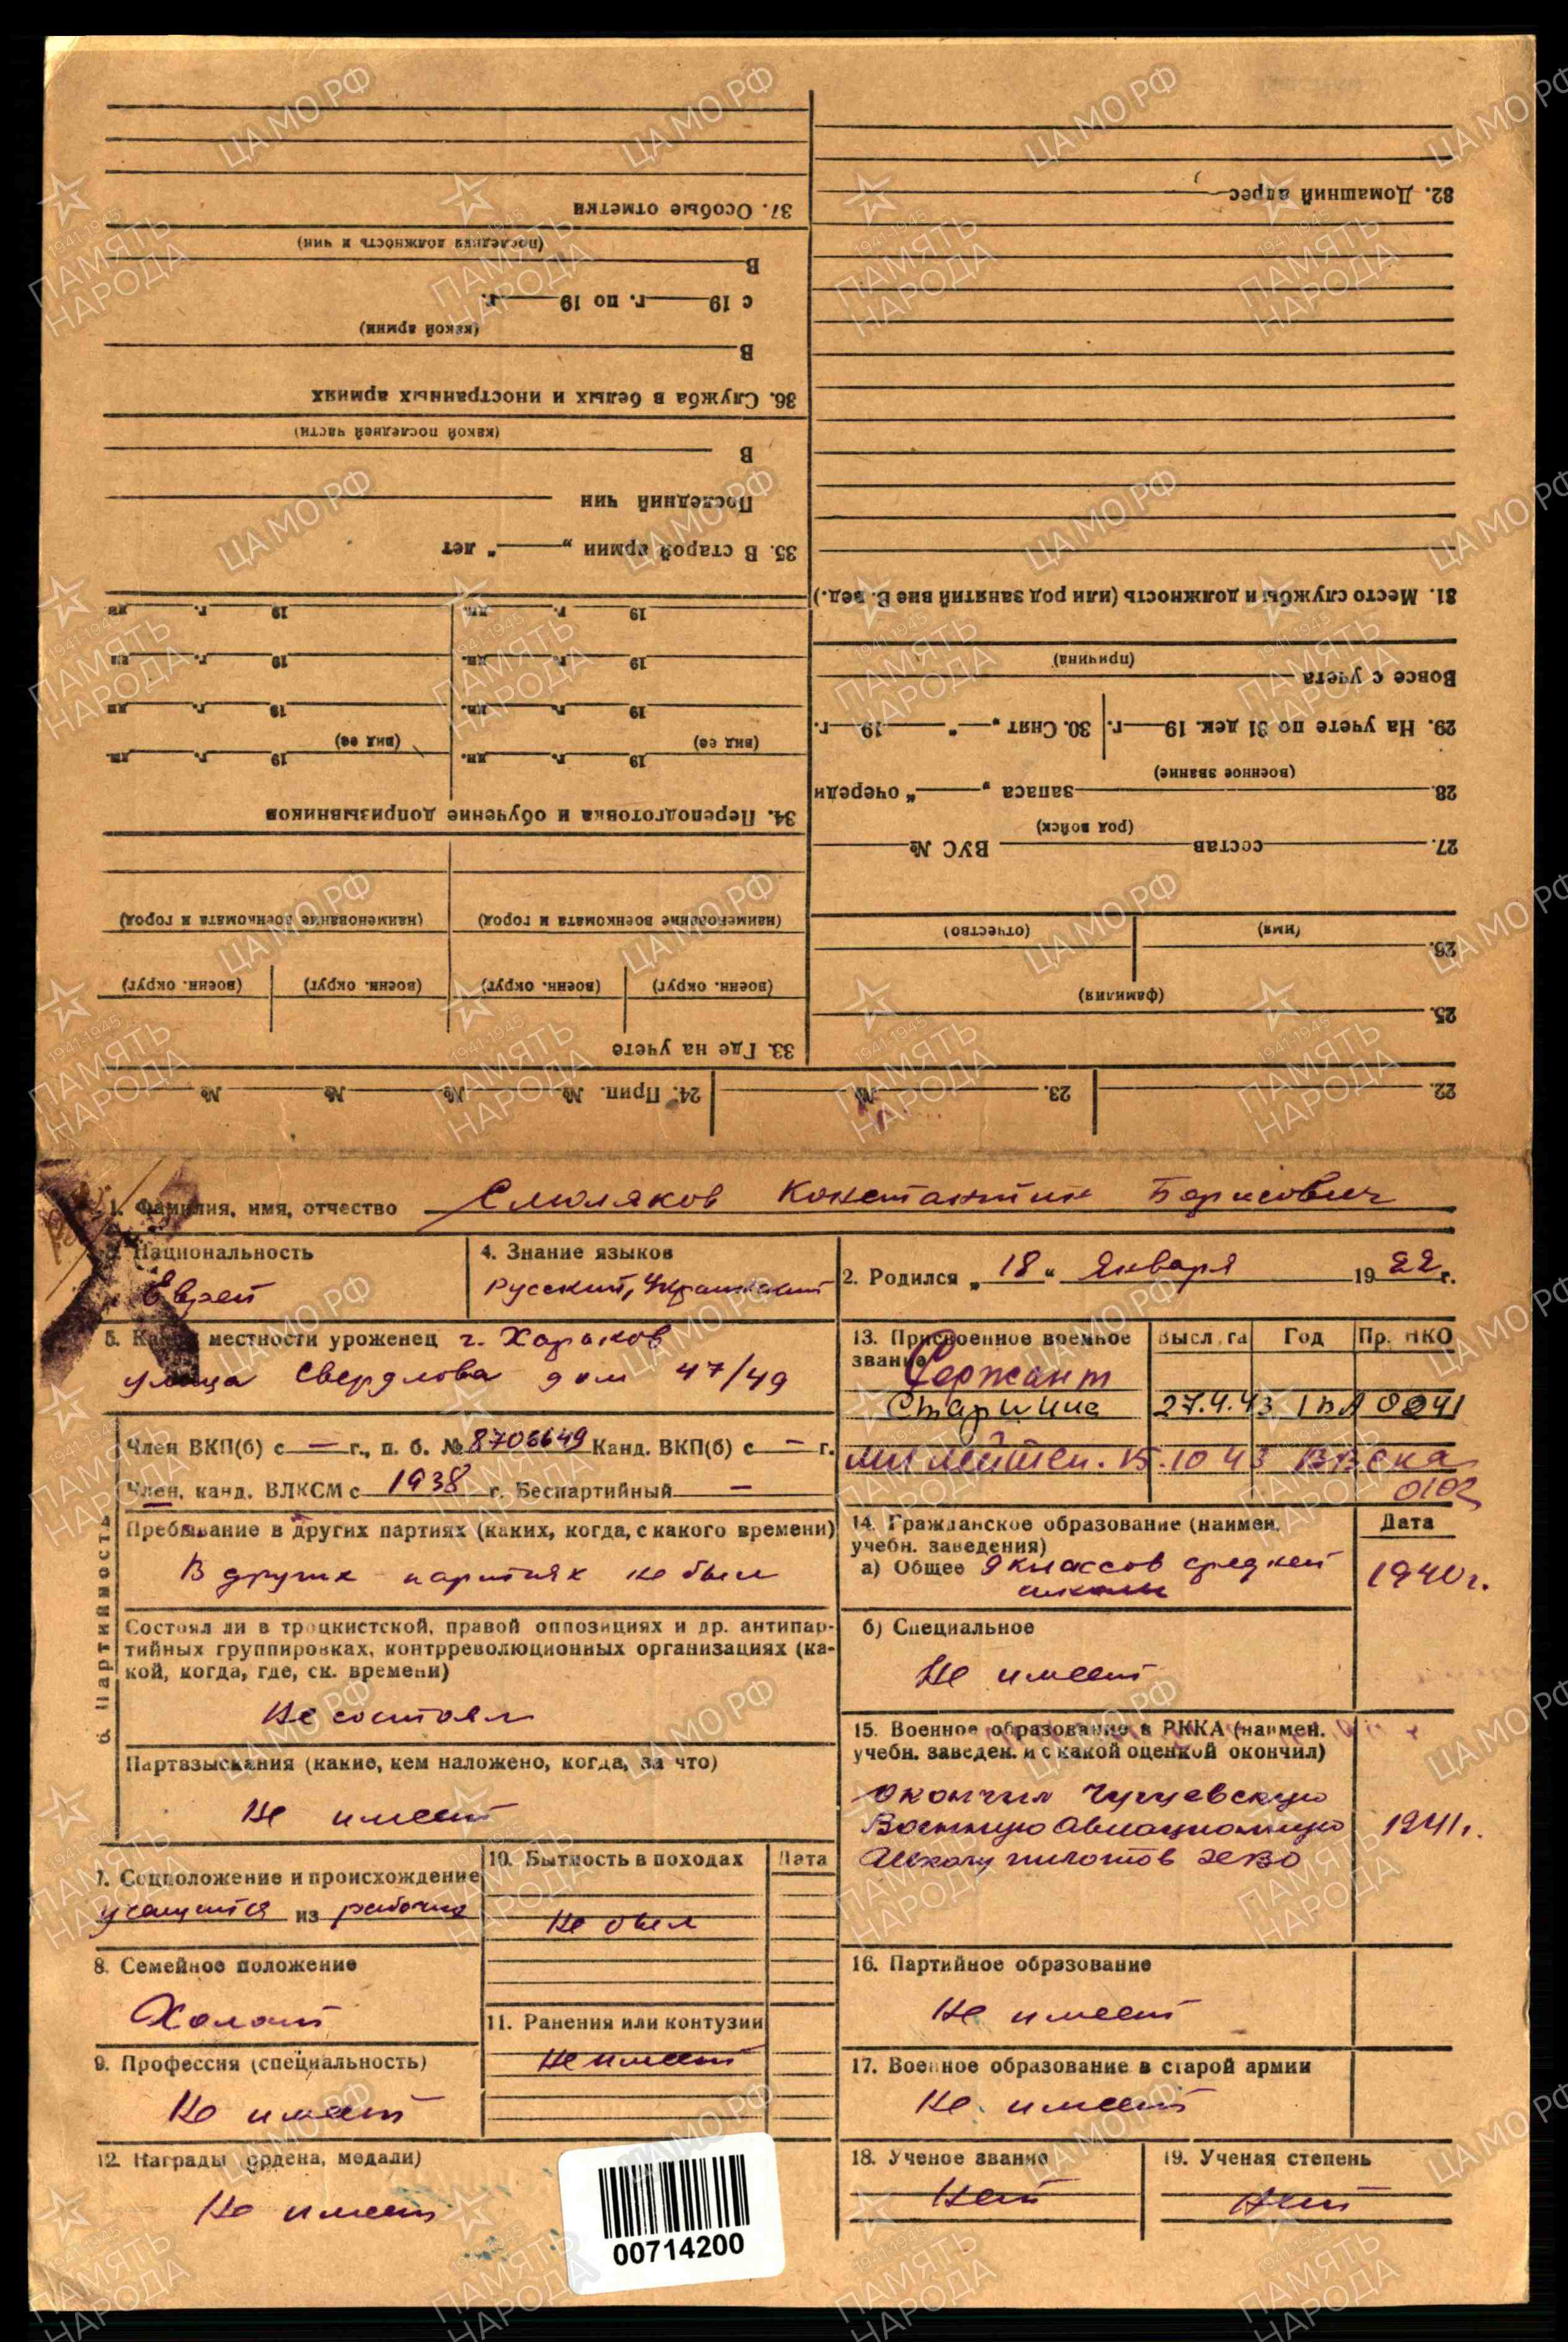 82. Домашний адрес
37. Особые отметки
(последняя должность и чин)
В
с 19 г. по 19 г.
(какой армии)
В
36. Служба в белых и иностранных армиях
(какой последней части)
В
Последний чин
35. В старой армии „ “ лет
31. Место службы и должность (или род занятий вне В. вед.)
(причина)
Вовсе с учета
29. На учете по 31 дек. 19 г. 30. Снят „ “ 19 г.
(военное звание)
28. запаса „ “ очереди
(род войск)
27. состав ВУС №
19 г. дн. 19 г. дн
19 г. дн. 19 г. дн
19 г. дн. 19 г. дн
(вид ее) (вид ее)
19 г. дн. 19 г. дн.
34. Переподготовка и обучение допризывников
(наименование военкомата и город) (наименование военкомата и город)
(военн. округ) (военн. округ) (военн. округ) (военн. округ)
33. Где на учете
(имя) (отчество)
26.
(фамилия)
25.
22. 23. № 24. Прип. № № № №
1. Фамилия, имя, отчество Смоляков Константин Борисович
3. Национальность
Еврей
4. Знание языков
Русский, Украинский
2. Родился „18“ Января 1922 г.
5. Какой местности уроженец г. Харьков
улица Свердлова дом 47/49
13. Присвоенное военное звание Высл. га Год Пр. НКО
Сержант
Старшина 27.4.43 1 ВА 0041
мл лейтен. 15.10 43 ВВС ка
0102
6. Партийность
Член ВКП(б) с — г., п. б. № 8706649 Канд. ВКП(б) с — г.
Член, канд. ВЛКСМ с 1938 г. Беспартийный —
Пребывание в других партиях (каких, когда, с какого времени)
В других партиях не был
Состоял ли в троцкистской, правой оппозициях и др. антипар-
тийных группировках, контрреволюционных организациях (ка-
кой, когда, где, ск. времени)
Не состоял
Партвзыскания (какие, кем наложено, когда, за что)
Не имеет
14. Гражданское образование (наимен. Дата
учебн. заведения)
а) Общее 9 классов средней
школы
1940г.
б) Специальное
Не имеет
15. Военное образование в РККА (наимен.
учебн. заведен. и с какой оценкой окончил)
Окончил Чугуевскую
Военную Авиационную 1941г.
Школу пилотов ХВО
7. Соцположение и происхождение
учащийся из рабочих
8. Семейное положение
Холост
9. Профессия (специальность)
Не имеет
10. Бытность в походах Дата
Не был
11. Ранения или контузии
Не имеет
16. Партийное образование
Не имеет
17. Военное образование в старой армии
Не имеет
12. Награды (ордена, медали)
Не имеет
18. Ученое звание
Нет
19. Ученая степень
Нет
00714200
ЦАМО РФ
1941-1945
ПАМЯТЬ
НАРОДА